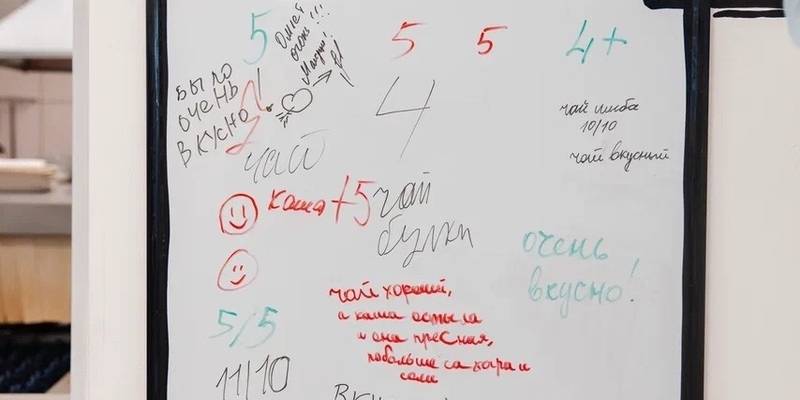 5
Омлет
очень!!!
5
5
4+
БЫЛО
ОЧЕНЬ
ВКУСНО!
4
чай имба
10/10
чай вкусный
чай
каша +5
чай
булки
очень
вкусно!
чай хороший,
а каша остыла
и она пресная,
побольше сахара и
соли
5/5
11/10